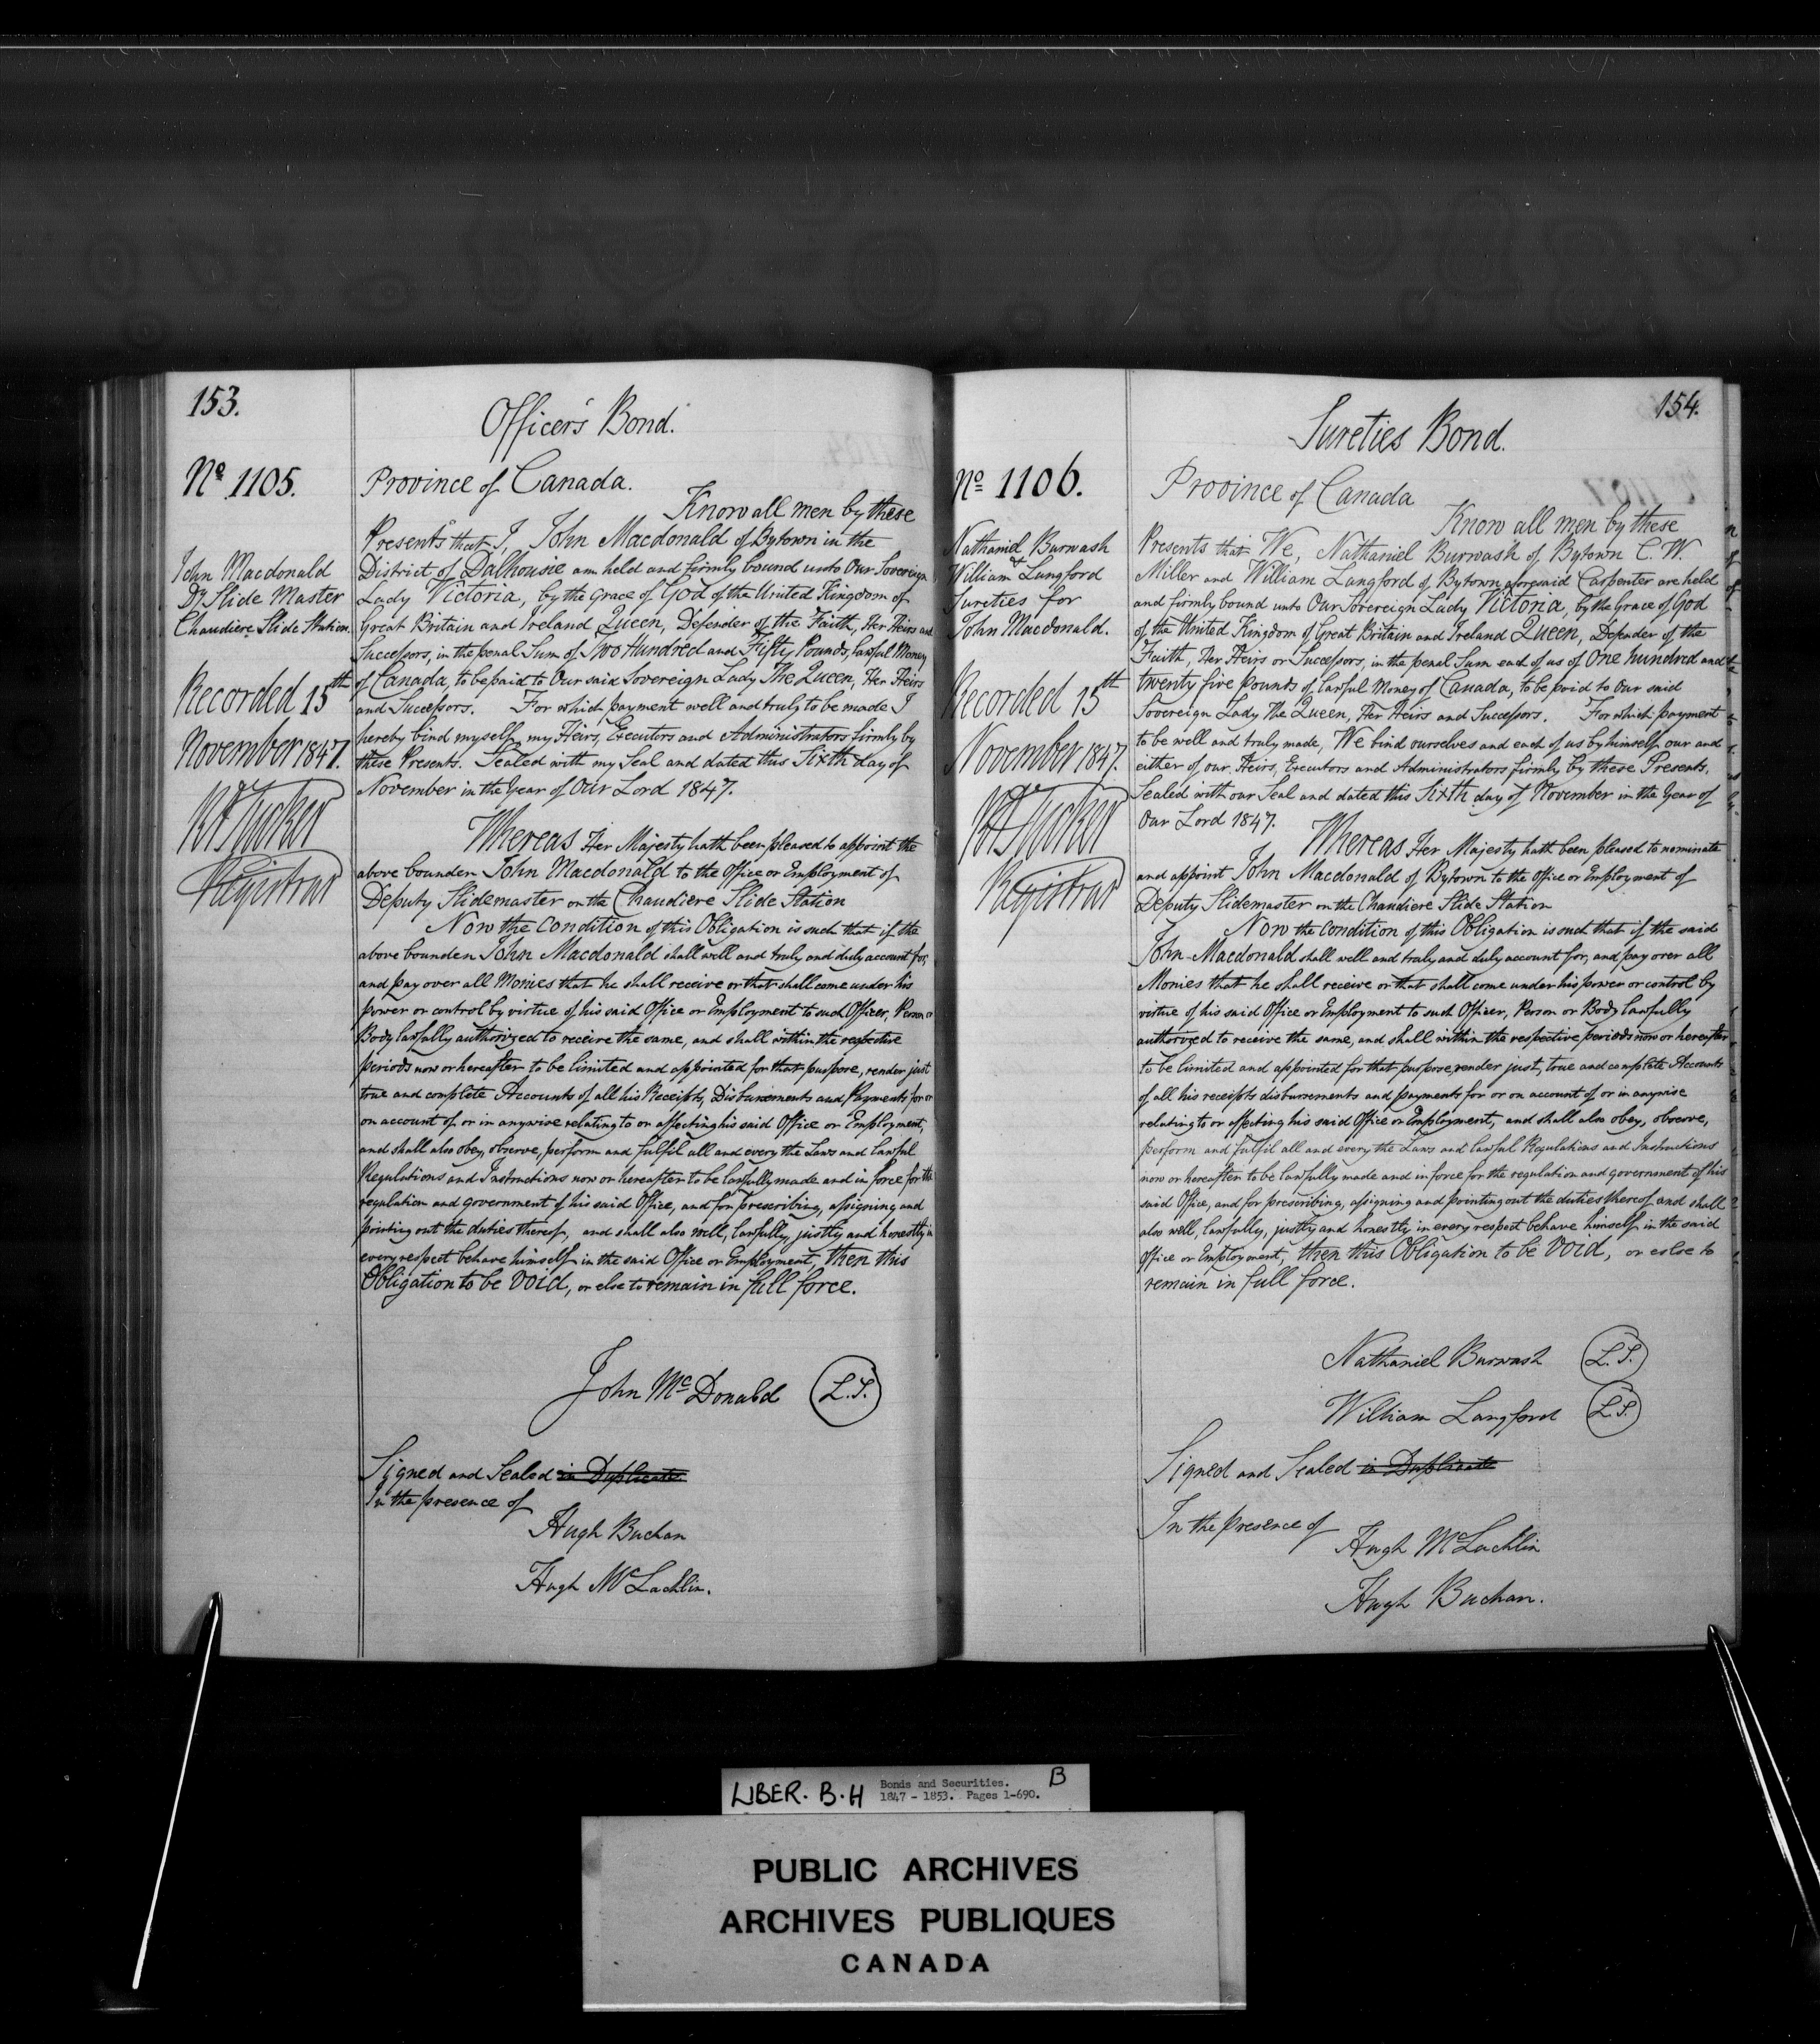 153.
Officer's Bond.
No. 1105.
Province of Canada.
Know all men by these
Presents that I, John Macdonald of Bytown in the
District of Dalhousie am held and firmly bound unto Our Sovereign
Lady Victoria, by the Grace of God of the United Kingdom of
Great Britain and Ireland Queen, Defender of the Faith, Her Heirs and
Successors, in the penal Sum of Two Hundred and Fifty Pounds, lawful Money
of Canada, to be paid to Our said Sovereign Lady The Queen, Her Heirs
and Successors. For which payment well and truly to be made I
hereby bind myself, my Heirs, Executors and Administrators firmly by
these Presents. Sealed with my Seal and dated this Sixth day of
November in the Year of Our Lord 1847.
John Macdonald
Dy Slide Master
Chaudiere Slide Station.
Recorded 15th
November 1847.
R A Tucker
Registrar
Whereas Her Majesty hath been pleased to appoint the
above bounden John Macdonald to the Office or Employment of
Deputy Slidemaster on the Chaudiere Slide Station
Now the Condition of this Obligation is such that if the
above bounden John Macdonald shall well and truly and duly account for,
and pay over all Monies that he shall receive or that shall come under his
power or control by virtue of his said Office or Employment to such Officer, Person or
Body lawfully authorized to receive the same, and shall within the respective
periods now or hereafter to be limited and appointed for that purpose, render just
true and complete Accounts of all his Receipts, Disbursements and Payments for or
on account of or in anywise relating to or affecting his said Office or Employment,
and shall also obey, observe, perform and fulfil all and every the Laws and lawful
Regulations and Instructions now or hereafter to be lawfully made and in force for the
regulation and government of his said Office, and for prescribing, assigning and
pointing out the duties thereof, and shall also well, lawfully, justly and honestly in
every respect behave himself in the said Office or Employment, then this
Obligation to be void, or else to remain in full force.
John McDonald L.S.
Signed and Sealed in Duplicate
In the presence of
Hugh Buchan
Hugh McLachlin.
154.
Sureties Bond.
No 1106.
Province of Canada
Know all men by these
Presents that We, Nathaniel Burwash of Bytown C. W.
Miller and William Langford of Bytown aforesaid Carpenter are held
and firmly bound unto Our Sovereign Lady Victoria, by the Grace of God
of the United Kingdom of Great Britain and Ireland Queen, Defender of the
Faith, Her Heirs or Successors, in the penal Sum each of us of One hundred and
twenty five pounds of lawful Money of Canada, to be paid to Our said
Sovereign Lady The Queen, Her Heirs and Successors. For which payment
to be well and truly made, We bind ourselves and each of us by himself our and
either of our Heirs, Executors and Administrators firmly by these Presents.
Sealed with our Seal and dated this Sixth day of November in the Year of
Our Lord 1847.
Nathaniel Burwash
& William Langford
Sureties for
John Macdonald.
Recorded 15th
November 1847.
R A Tucker
Registrar
Whereas Her Majesty hath been pleased to nominate
and appoint John Macdonald of Bytown to the office or Employment of
Deputy Slidemaster on the Chaudiere Slide Station
Now the Condition of this Obligation is such that if the said
John Macdonald shall well and truly and duly account for, and pay over all
Monies that he shall receive or that shall come under his power or control by
virtue of his said Office or Employment to such Officer, Person or Body lawfully
authorized to receive the same, and shall within the respective periods now or hereafter
to be limited and appointed for that purpose, render just, true and complete Accounts
of all his receipts disbursements and payments for or on account of or in anywise
relating to or affecting his said Office or Employment, and shall also obey, observe,
perform and fulfil all and every the Laws and lawful Regulations and Instructions
now or hereafter to be lawfully made and in force for the regulation and government of his
said Office, and for prescribing, assigning and pointing out the duties thereof and shall
also well, lawfully, justly and honestly in every respect behave himself in the said
Office or Employment, then this Obligation to be void, or eslse to
remain in full force.
Nathaniel Burwash L.S.
William Langford L.S.
Signed and Sealed in Duplicate
In the presence of
Hugh McLachlin
Hugh Buchan.
LIBER. B.H
Bonds and Securities. B
1847 - 1853. Pages 1-690.
PUBLIC ARCHIVES
ARCHIVES PUBLIQUES
CANADA